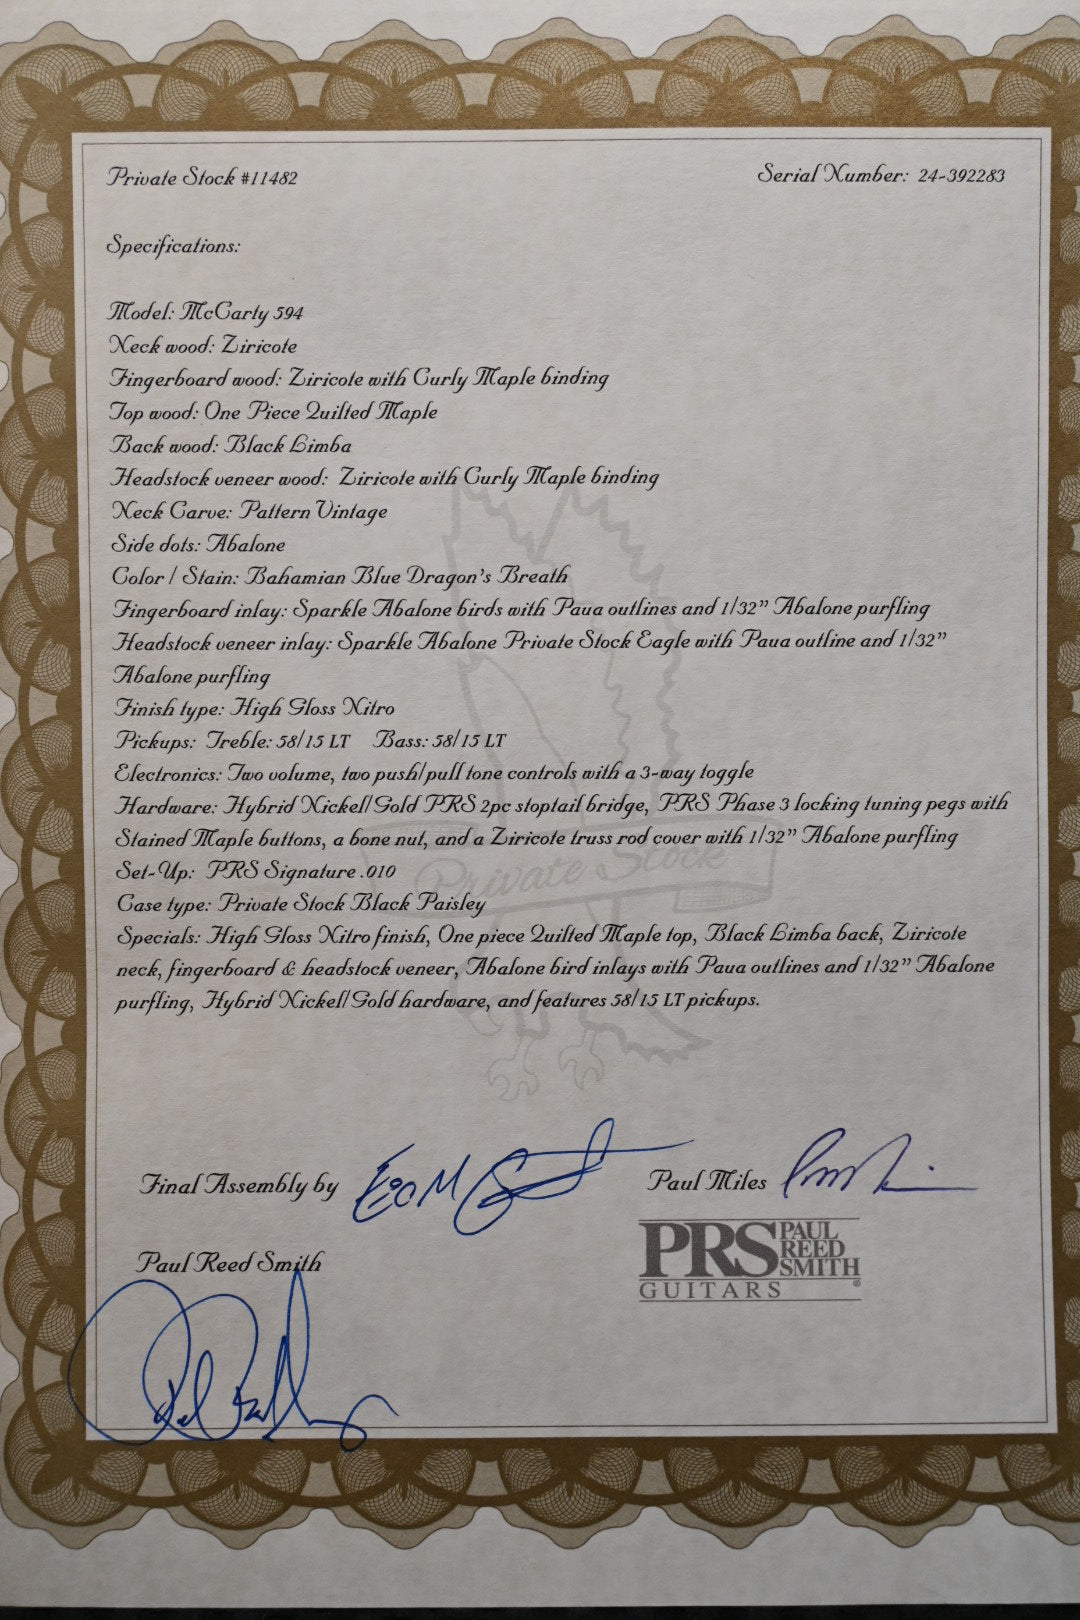 Private Stock #11482
Serial Number: 24-392283
Specifications:
Model: McCarty 594
Neck wood: Ziricote
Fingerboard wood: Ziricote with Curly Maple binding
Top wood: One Piece Quilted Maple
Back wood: Black Limba
Headstock veneer wood: Ziricote with Curly Maple binding
Neck Carve: Pattern Vintage
Side dots: Abalone
Color / Stain: Bahamian Blue Dragon's Breath
Fingerboard inlay: Sparkle Abalone birds with Paua outlines and 1/32" Abalone purfling
Headstock veneer inlay: Sparkle Abalone Private Stock Eagle with Paua outline and 1/32"
Abalone purfling
Finish type: High Gloss Nitro
Pickups: Treble: 58/15 LT Bass: 58/15 LT
Electronics: Two volume, two push/pull tone controls with a 3-way toggle
Hardware: Hybrid Nickel/Gold PRS 2pc stoptail bridge, PRS Phase 3 locking tuning pegs with
Stained Maple buttons, a bone nut, and a Ziricote truss rod cover with 1/32" Abalone purfling
Private Stock
Set-Up: PRS Signature .010
Case type: Private Stock Black Paisley
Specials: High Gloss Nitro finish, One piece Quilted Maple top, Black Limba back, Ziricote
neck, fingerboard & headstock veneer, Abalone bird inlays with Paua outlines and 1/32" Abalone
purfling, Hybrid Nickel/Gold hardware, and features 58/15 LT pickups.
Final Assembly by
Paul Miles
Paul Reed Smith
PRS PAUL REED SMITH
GUITARS ®